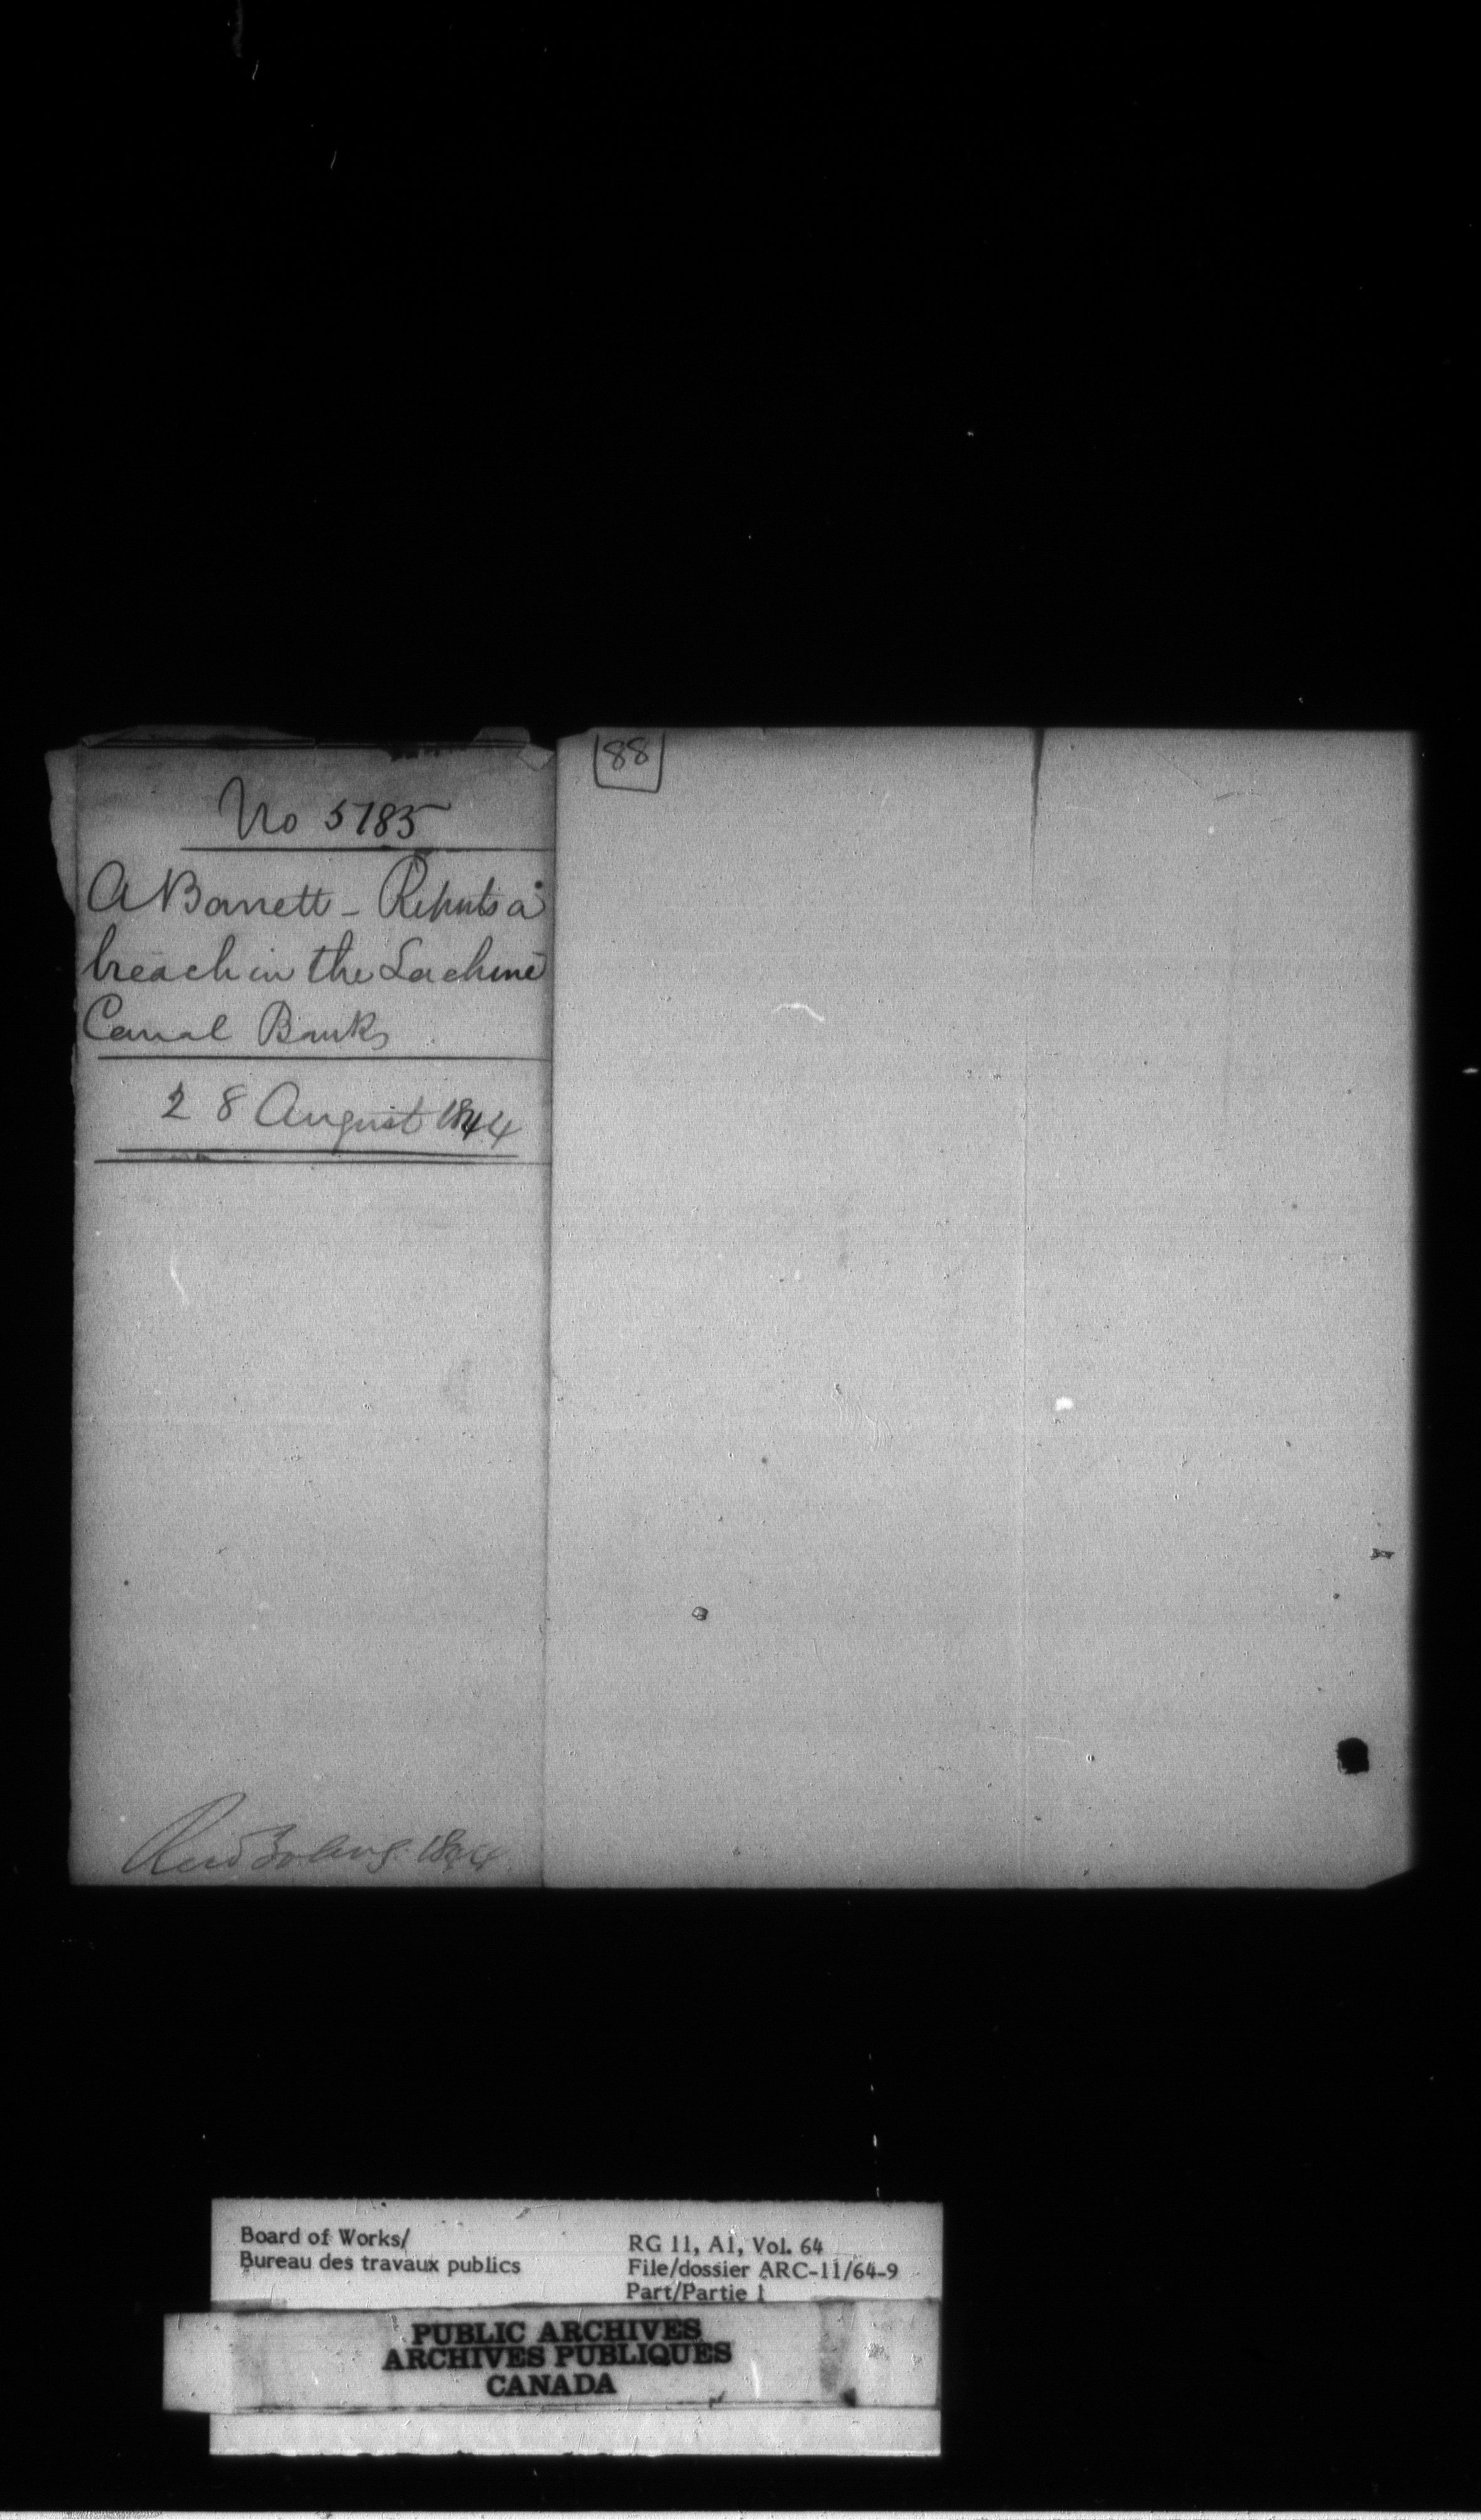 88
No 5785
A Barrett - Reports a
breach in the Lachine
Canal Banks
28 August 1844
Recd 30 Aug. 1844
Board of Works/
Bureau des travaux publics
RG 11, A1, Vol. 64
File/dossier ARC-11/64-9
Part/Partie 1
PUBLIC ARCHIVES
ARCHIVES PUBLIQUES
CANADA